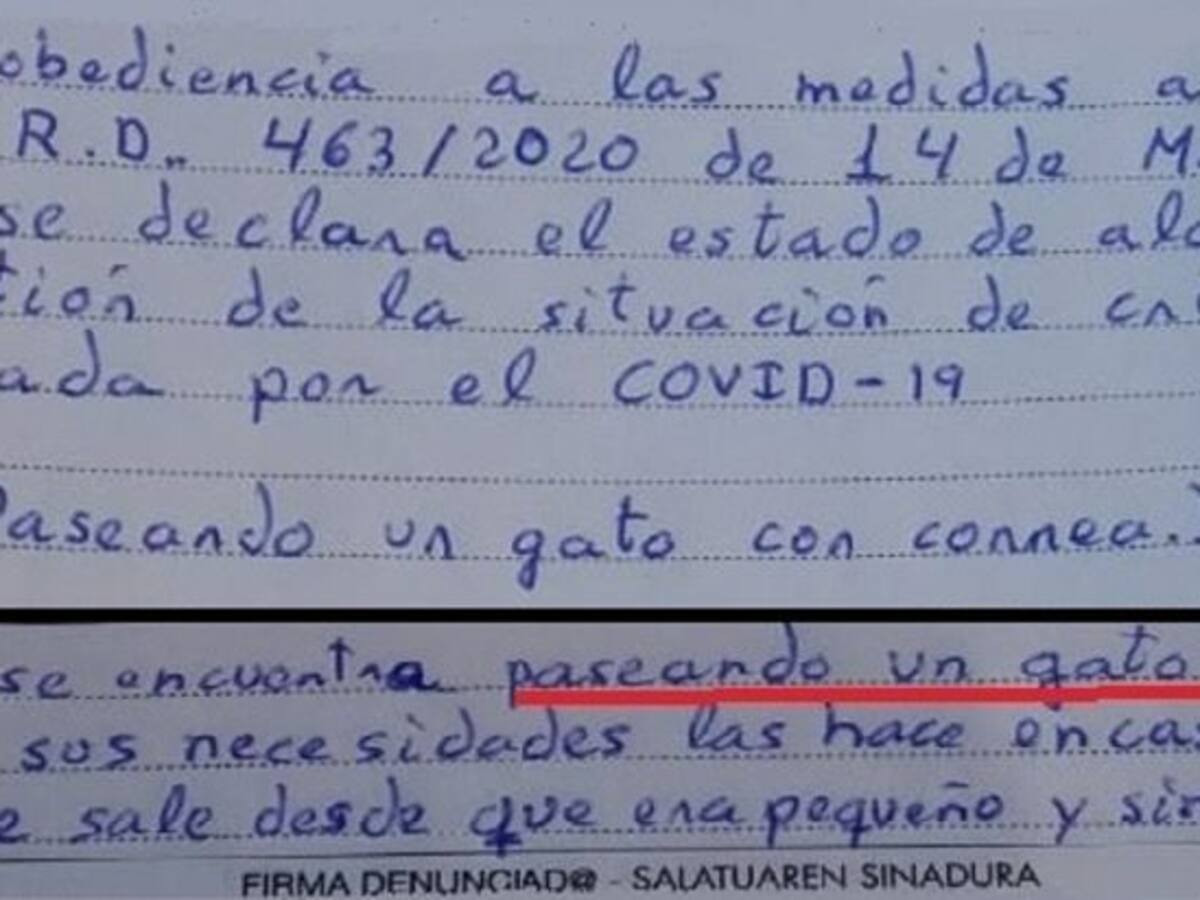 obediencia a las medidas a
R.D. 463/2020 de 14 de M
se declara el estado de ala
tión de la situación de cri
ada por el COVID-19
Paseando un gato con correa.
se encuentra paseando un gato
sus necesidades las hace en cas
e sale desde que era pequeño y sie
FIRMA DENUNCIAD@ - SALATUAREN SINADURA